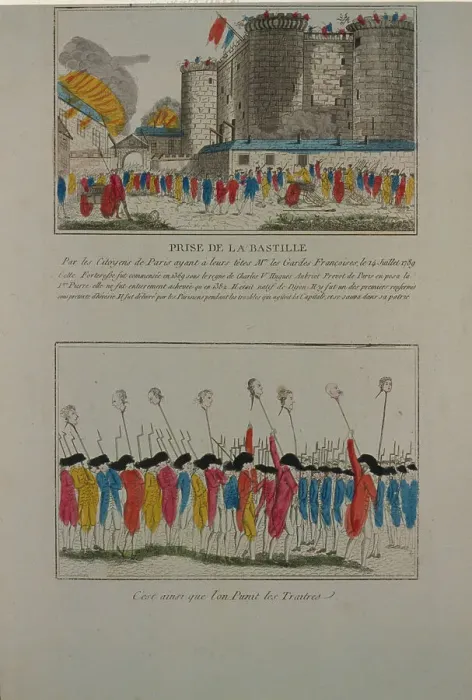 PRISE DE LA BASTILLE
Par les Citoyens de Paris ayant a leurs têtes Mrs les Gardes Françoises, le 14 Juillet 1789
Cette Forteresse fut commencée en 1369 sous le regne de Charles V Hugues Aubriot Prevot de Paris en posa la
1ere Pierre elle ne fut entierement achevée qu'en 1382 Il etoit natif de Dijon Il y fut un des premiers renfermé
sous pretexte d'héresie. Il fut délivré par les Parisiens pendant les troubles qui agitoit la Capitale, et se sauva dans sa patrie
C'est ainsi que l'on Punit les Traitres